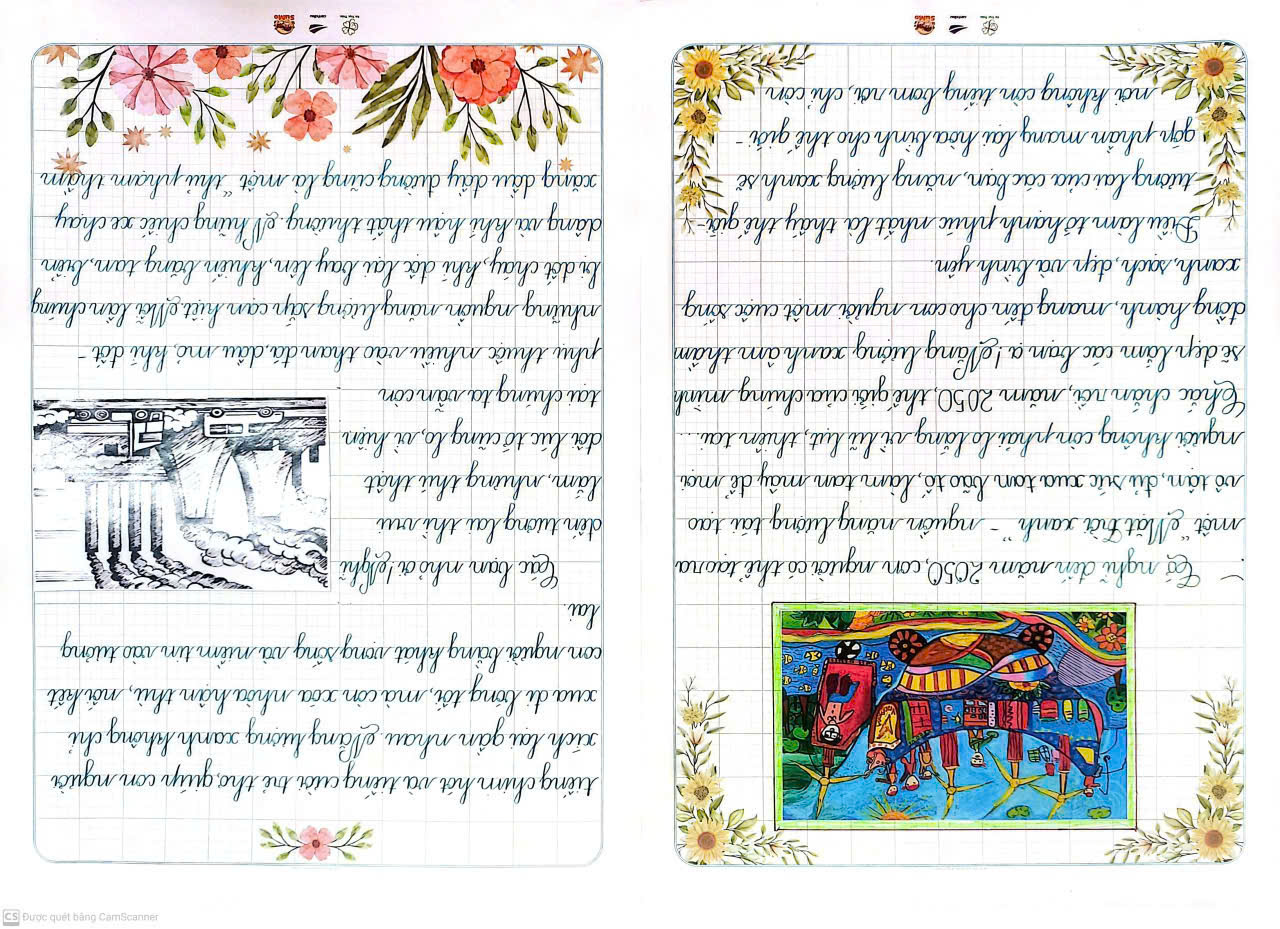 Cứ nghĩ đến năm 2050, con người có thể tạo ra
một “Mặt Trời xanh” - nguồn năng lượng tái tạo
vô tận, đủ sức xua tan bão tố, làm tan mây để mọi
người không còn phải lo lắng vì lũ, lụt, thiên tai...
Chắc chắn rồi, năm 2050, thế giới của chúng mình
sẽ đẹp lắm các bạn ạ! Năng lượng xanh âm thầm
đồng hành, mang đến cho con người một cuộc sống
xanh, sạch, đẹp và bình yên.
Điều làm tớ hạnh phúc nhất là thấy thế giới
tương lai của các bạn, năng lượng xanh sẽ
góp phần mang lại hòa bình cho thế giới -
nơi không còn tiếng bom rơi, chỉ còn
SuMo
tiếng chim hót và tiếng cười trẻ thơ, giúp con người
xích lại gần nhau. Năng lượng xanh không chỉ
xua đi bóng tối, mà còn xóa nhòa hận thù, nối kết
con người bằng khát vọng sống và niềm tin vào tương
lai.
Các bạn nhỏ ơi! Nghĩ
đến tương lai thì vui
lắm, nhưng thú thật
đôi lúc tớ cũng lo, vì hiện
tại chúng ta vẫn còn
phụ thuộc nhiều vào than đá, dầu mỏ, khí đốt -
những nguồn năng lượng sắp cạn kiệt. Mỗi lần chúng
bị đốt cháy, khí độc lại bay lên, khiến băng tan, biển
dâng và khí hậu thất thường. Những chiếc xe chạy
xăng dầu đầy đường cũng là một “thủ phạm thầm
SuMo
CS Được quét bằng CamScanner